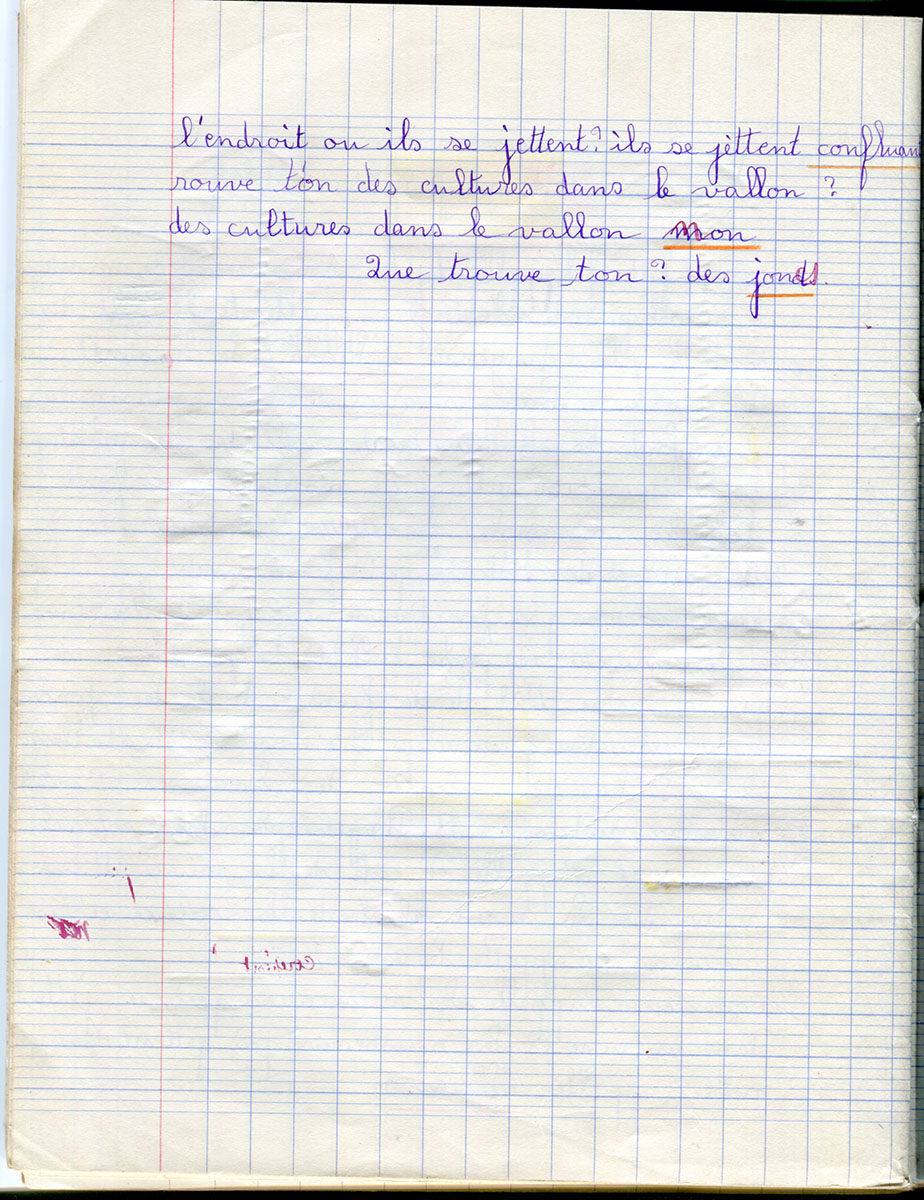 l'endroit ou ils se jettent? ils se jettent confluan
rouve t'on des cultures dans le vallon ?
des cultures dans le vallon non
Que trouve ton ? des joncs.